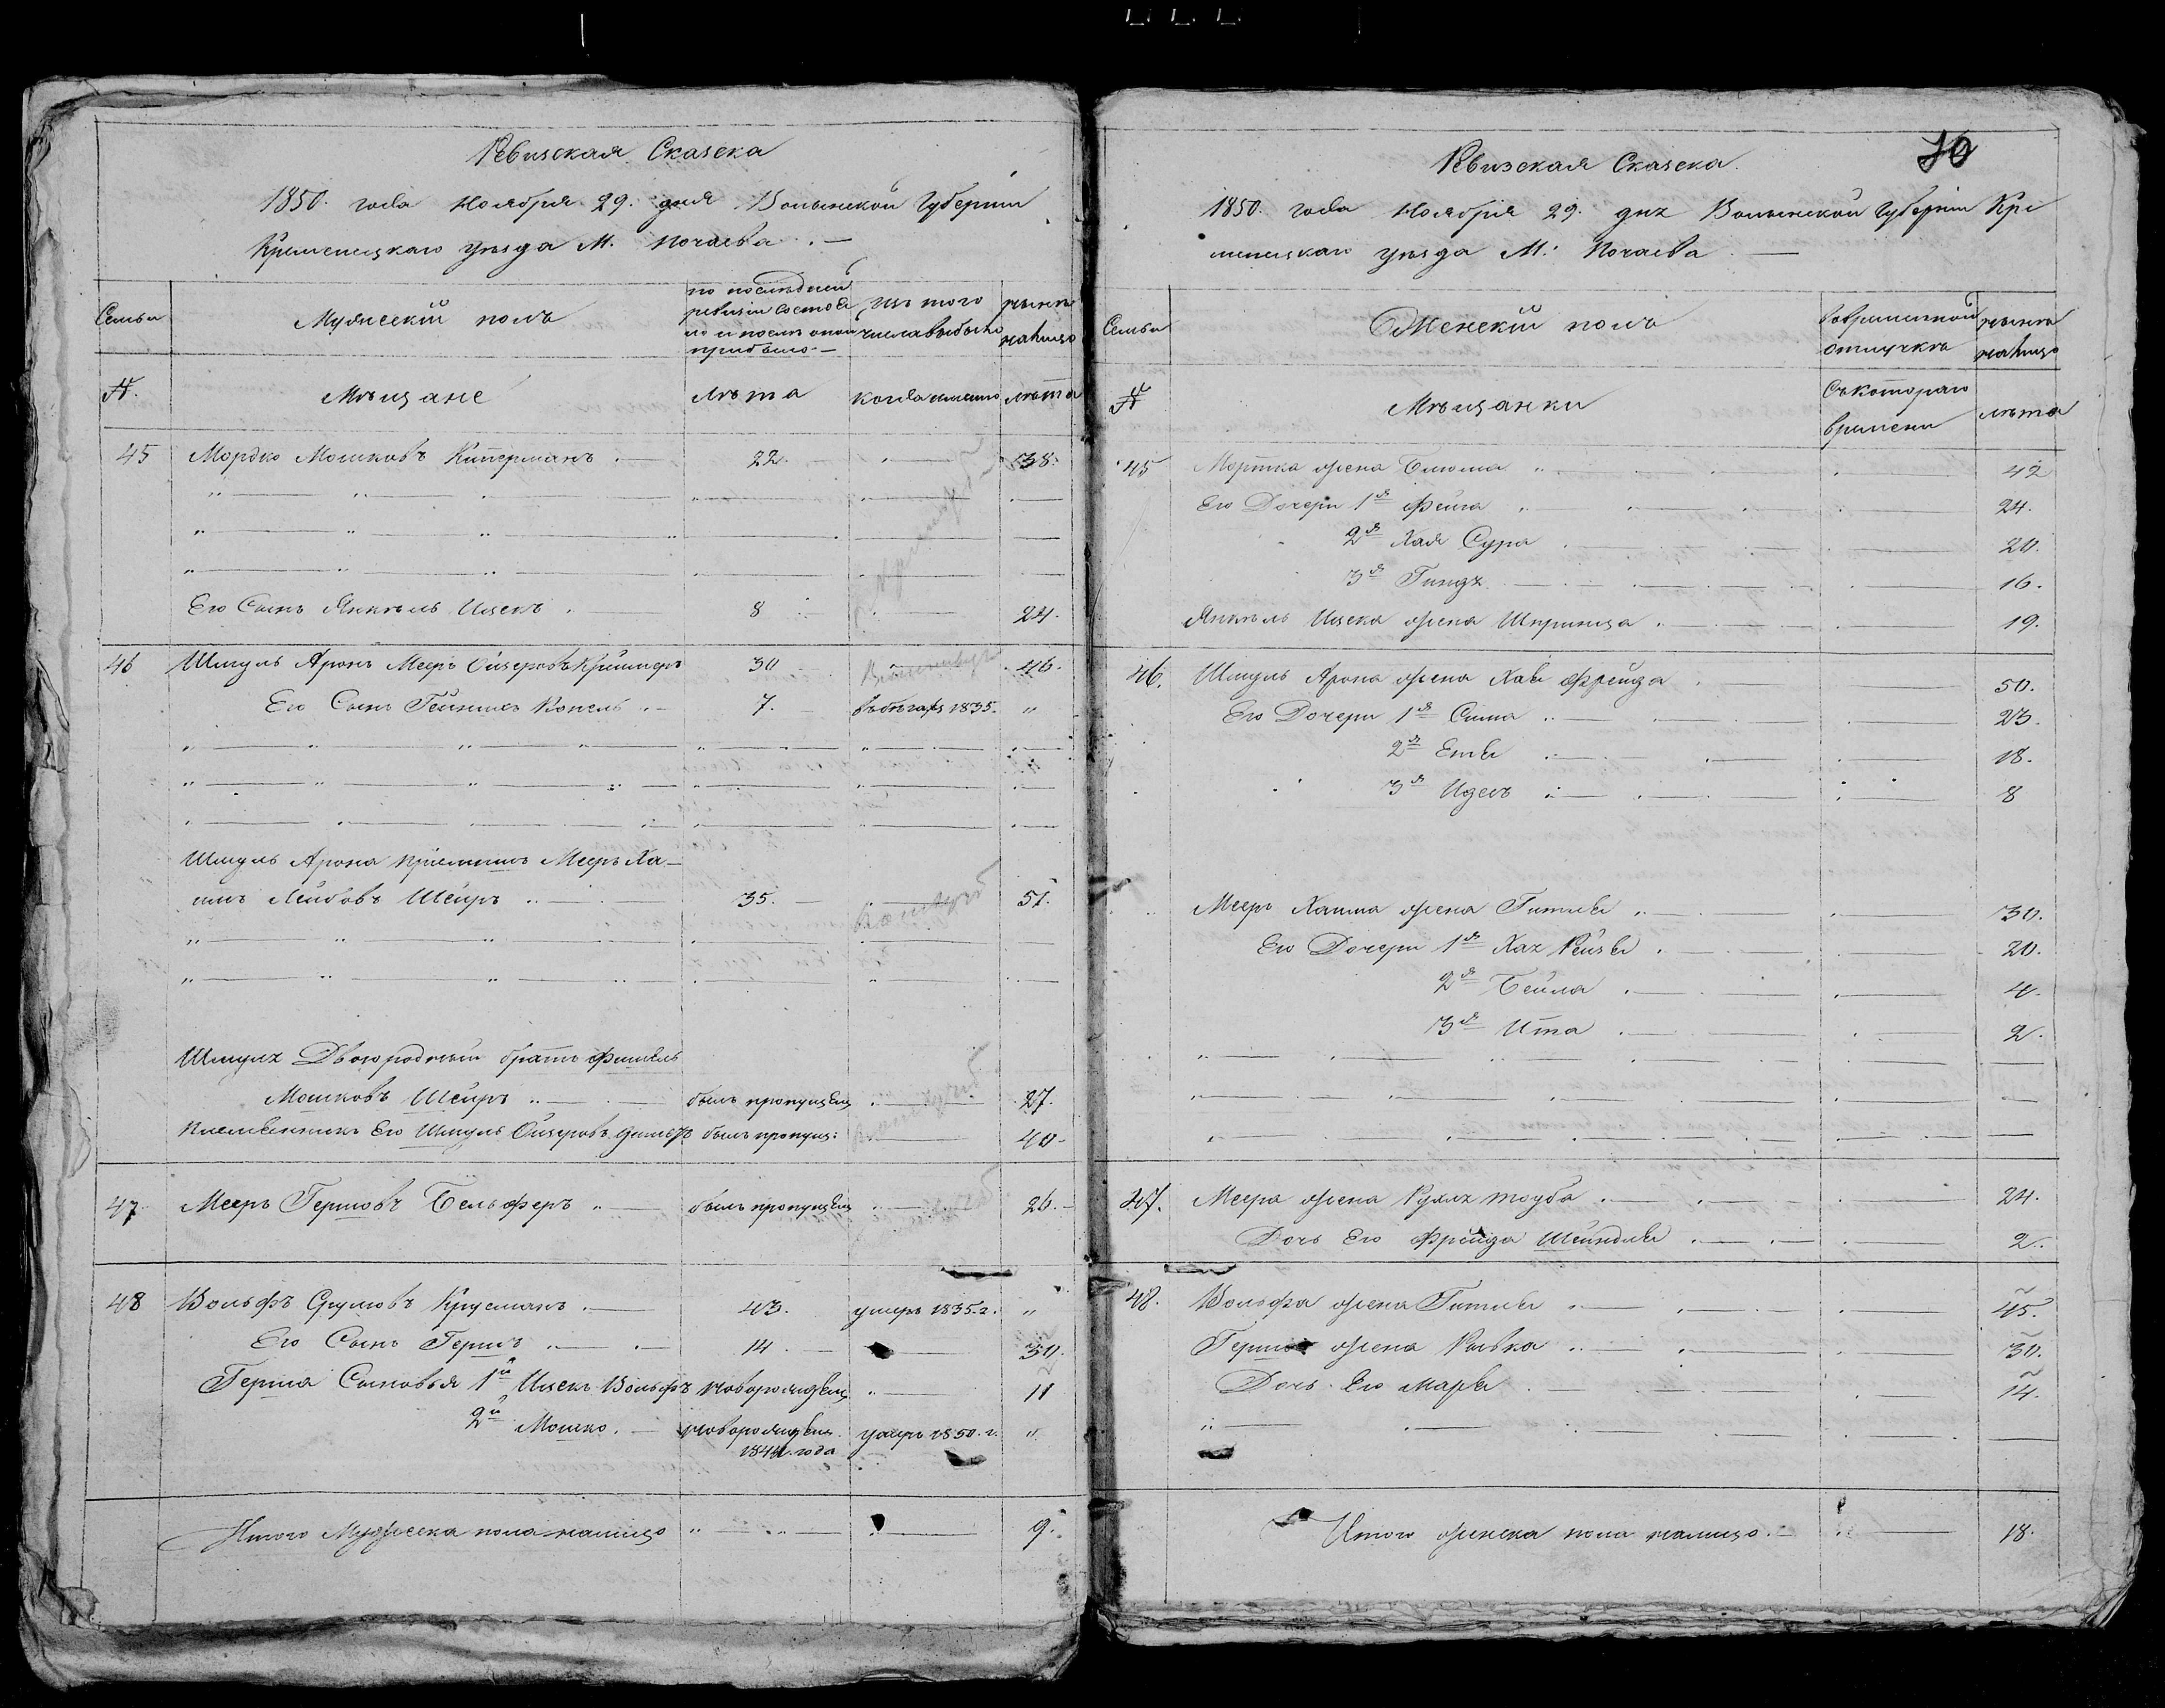 Ревизская Сказка
1850. года Ноября 29. дня Волынской Губернии
Кременецкаго уезда М. Почаева
Семьи
Мужескій полъ
по последней
ревизіи состоя
ло и после оной
прибыло
изъ того
числа выбыло
ныне
налицо
№.
Мещане
Лета
когда именно
лета
45 Мордко Мошковъ Киперманъ 22. 38.
Его Сынъ Янкель Ицекъ 8 24.
46 Шмуль Аронъ Мееръ Ойзеровъ 30 46.
Его Сынъ 7. въ бегахъ 1835. "
Шмуль Арона Мееръ Ха-
имъ Лейбовъ Шейръ 35. 51.
Шмуля Двоюродный братъ Фишель
Мошковъ Шейръ былъ пропущенъ 27.
Племенникъ Его Шмуль Ойзеровъ былъ пропущ: 40
47 Мееръ Гершовъ Бельферъ былъ пропущенъ 26.
48 Вольфъ Сруловъ Крусманъ 43. умеръ 1835. г. "
Его Сынъ Гершъ 14. 30.
Герша Сыновья 1й Ицекъ Вольфъ новорожденъ 11
2й Мошко. новорожден. умеръ 1850. г. "
1844. года
Итого Мужеска пола налицо 9.
70
Ревизская Сказка.
1850. года Ноября 29. дня Волынской Губерніи Кре
менецкаго уезда М: Почаева
Семьи
Женскій полъ
во временной
отлучке
ныне
налицо
№
Мещанки
Съ котораго
времени
лета
45 Мортка жена Блюма 42
Его Дочери 1я Фейга 24.
2я Хая Сура 20.
3я Гиндя 16.
Янкель Ицека жена Шпринца 19.
46. Шмуль Арона жена Хае Фрейда 50.
Его Дочери 1я Сима 23.
2я Етве 18.
3я Идесъ 8
Мееръ Хаима жена Гитле 30.
Его Дочери 1я Хая Рейзе 20.
2я Бейла 4.
3я Ита 2.
47. Меера жена Рухля Тоуба 24.
Дочь Его Фрейда Шейндле 2.
48. Вольфа жена Гитле 45.
Герша жена Ривка 30.
Дочь Его Маре 14.
Итого женска пола налицо 18.